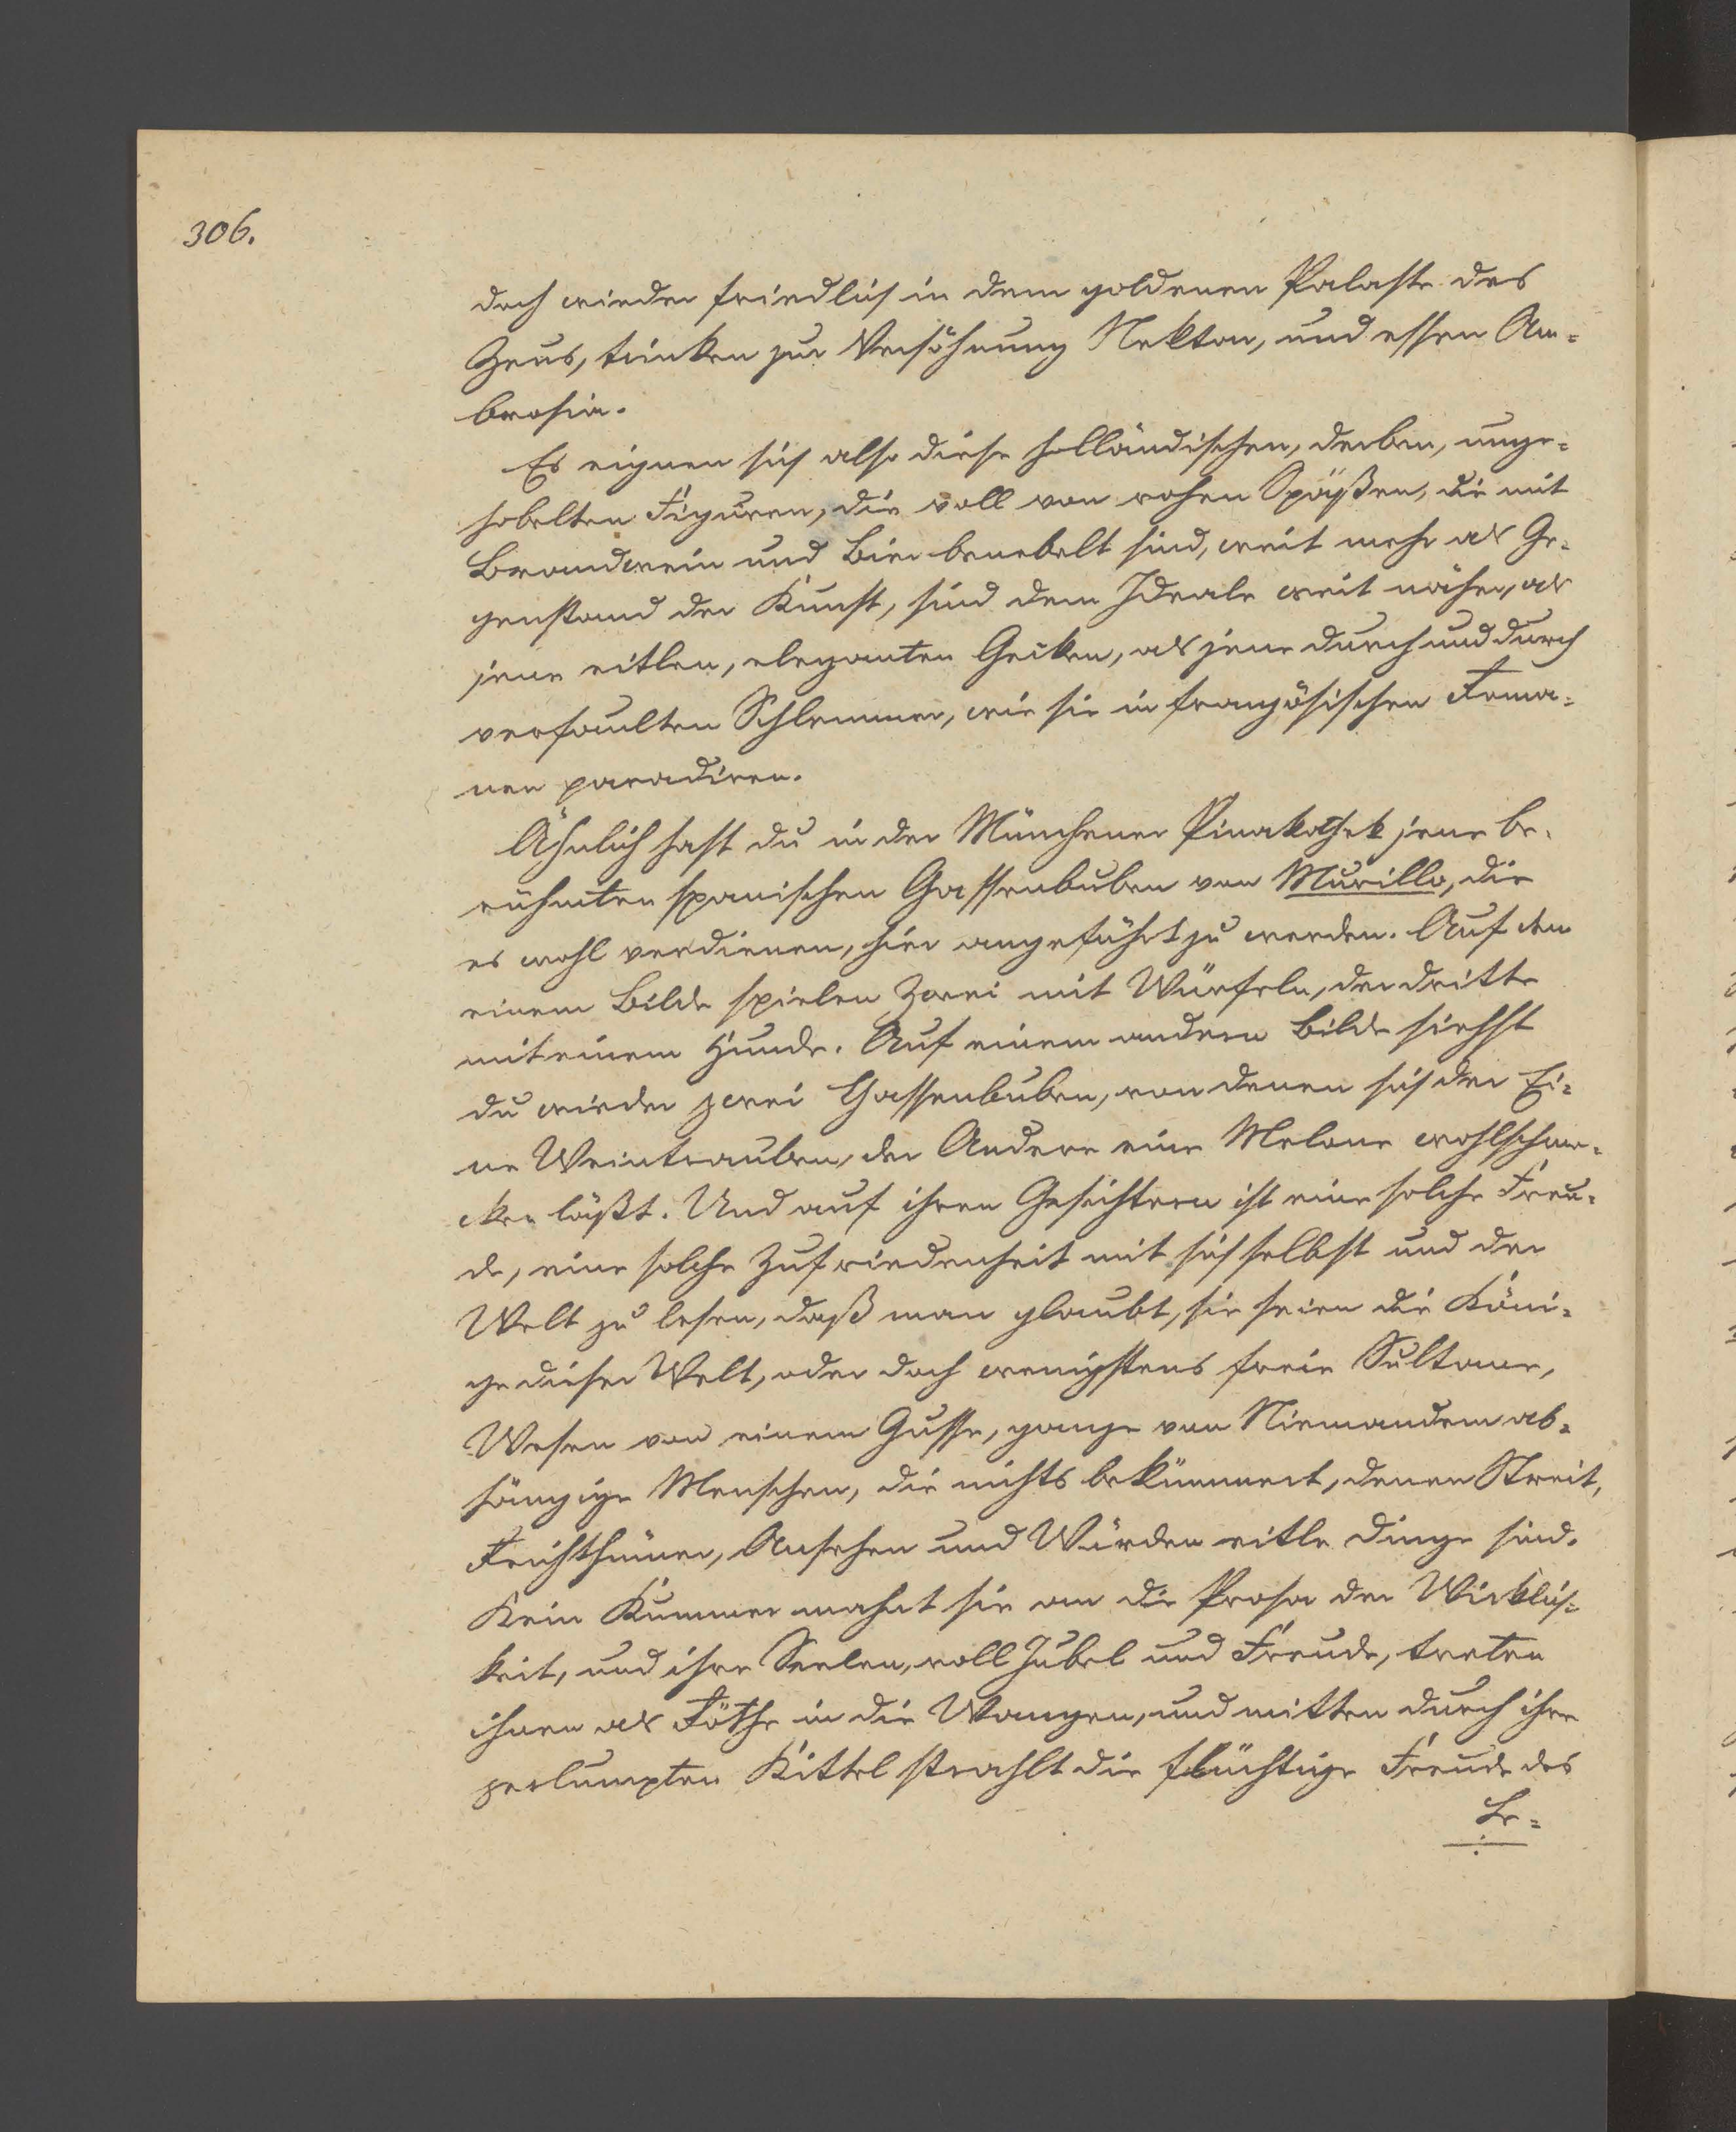 306.
doch wieder friedlich in dem goldenen Palaste des
Zeus, trinken zur Versöhnung Nektar, und essen Am=
brosia.
Es eignen sich also diese holländischen, derben, unge=
hobelten Figuren, die voll von rohen Späßen, die mit
Brandwein und Bier benebelt sind, weit mehr als Ge=
genstand der Kunst, sind dem Ideale weit näher, als
jene eitlen, eleganten Gecken, als jene durch und durch
verfaulten Schlemmer, wie sie in französischen Roma=
nen paradiren.
Ähnlich hast du in der Münchener Pinakothek jene be=
rühmten spanischen Gassenbuben von Murillo, die
es wohl verdienen, hier angeführt zu werden. Auf dem
einem Bilde spielen Zwei mit Würfeln, der dritte
mit einem Hunde. Auf einem andern Bilde siehst
du wieder zwei Gassenbuben, von denen sich der Ei=
ne Weintrauben, der Andere eine Melone wohlschme=
cken läßt. Und auf ihren Gesichtern ist eine solche Freu=
de, eine solche Zufriedenheit mit sich selbst und der
Welt zu lesen, daß man glaubt, sie seien die Köni=
ge dieser Welt, oder doch wenigstens freie Sultane,
Wesen von einem Gusse, ganze von Niemandem ab=
hängige Menschen, die nichts bekümmert, denen Streit,
Reichthümer, Ansehen und Würden eitle Dinge sind.
Kein Kummer mahnt sie an die Prosa der Wirklich=
keit, und ihre Seelen, voll Jubel und Freude, treten
ihnen als Röthe in die Wangen, und mitten durch ihre
zerlumpten Kittel strahlt die flüchtige Freude des
Le=